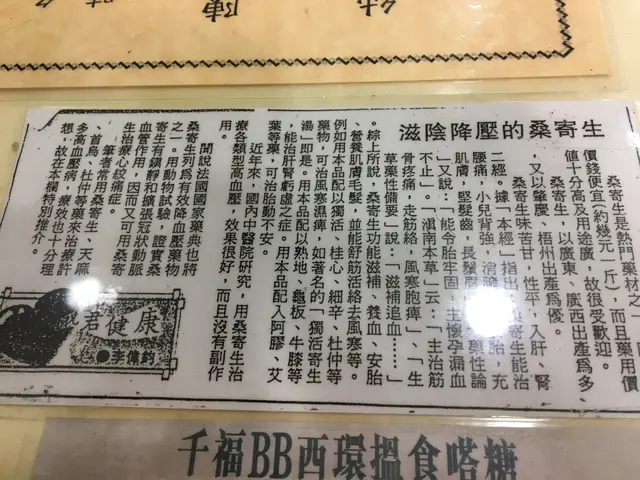 滋陰降壓的桑寄生
桑寄生是熱門藥材之一，
價錢便宜（約幾元一斤），而且藥用價
值十分高及用途廣，故很受歡迎。
桑寄生，以廣東、廣西出產為多、
又以肇慶、梧州出產為優。
桑寄生味苦甘，性平，入肝、腎
二經。據「本經」指出 桑寄生能治
腰痛，小兒背強，消 胎，充
肌膚，堅髮齒，長鬚眉 藥性論
」又說：「能令胎牢固，主懷孕漏血
不止。」「滇南本草」云：「主治筋
骨疼痛，走筋絡，風寒胞痺」、「生
草藥性備要」說：「滋補追血……」
。綜上所說，桑寄生功能滋補、養血、安胎
、營養肌膚毛髮，並能舒筋活絡去風寒等。
例如用本品配以獨活、桂心、細辛、杜仲等
藥物，可治風寒濕痺，如著名的「獨活寄生
湯」即是。用本品配以熟地、龜板、牛膝等
，能治肝腎虧虛之症。用本品配入阿膠、艾
葉等藥，可治胎動不安。
近年來，國內中醫院研究，用桑寄生治
療各類型高血壓，效果很好，而且沒有副作
用。
聞說法國國家藥典也將
桑寄生列為有效降血壓藥物
之一。用動物試驗，證實桑
寄生有鎮靜和擴張冠狀動脈
血管作用，因而又可用桑寄
生治療心絞痛症。
筆者常用桑寄生、天麻
、首烏、杜仲等藥來治療許
多高血壓病，療效也十分理
想，故在本欄特別推介。
君健康
●李偉鈞
千福BB西環搵食嗒糖